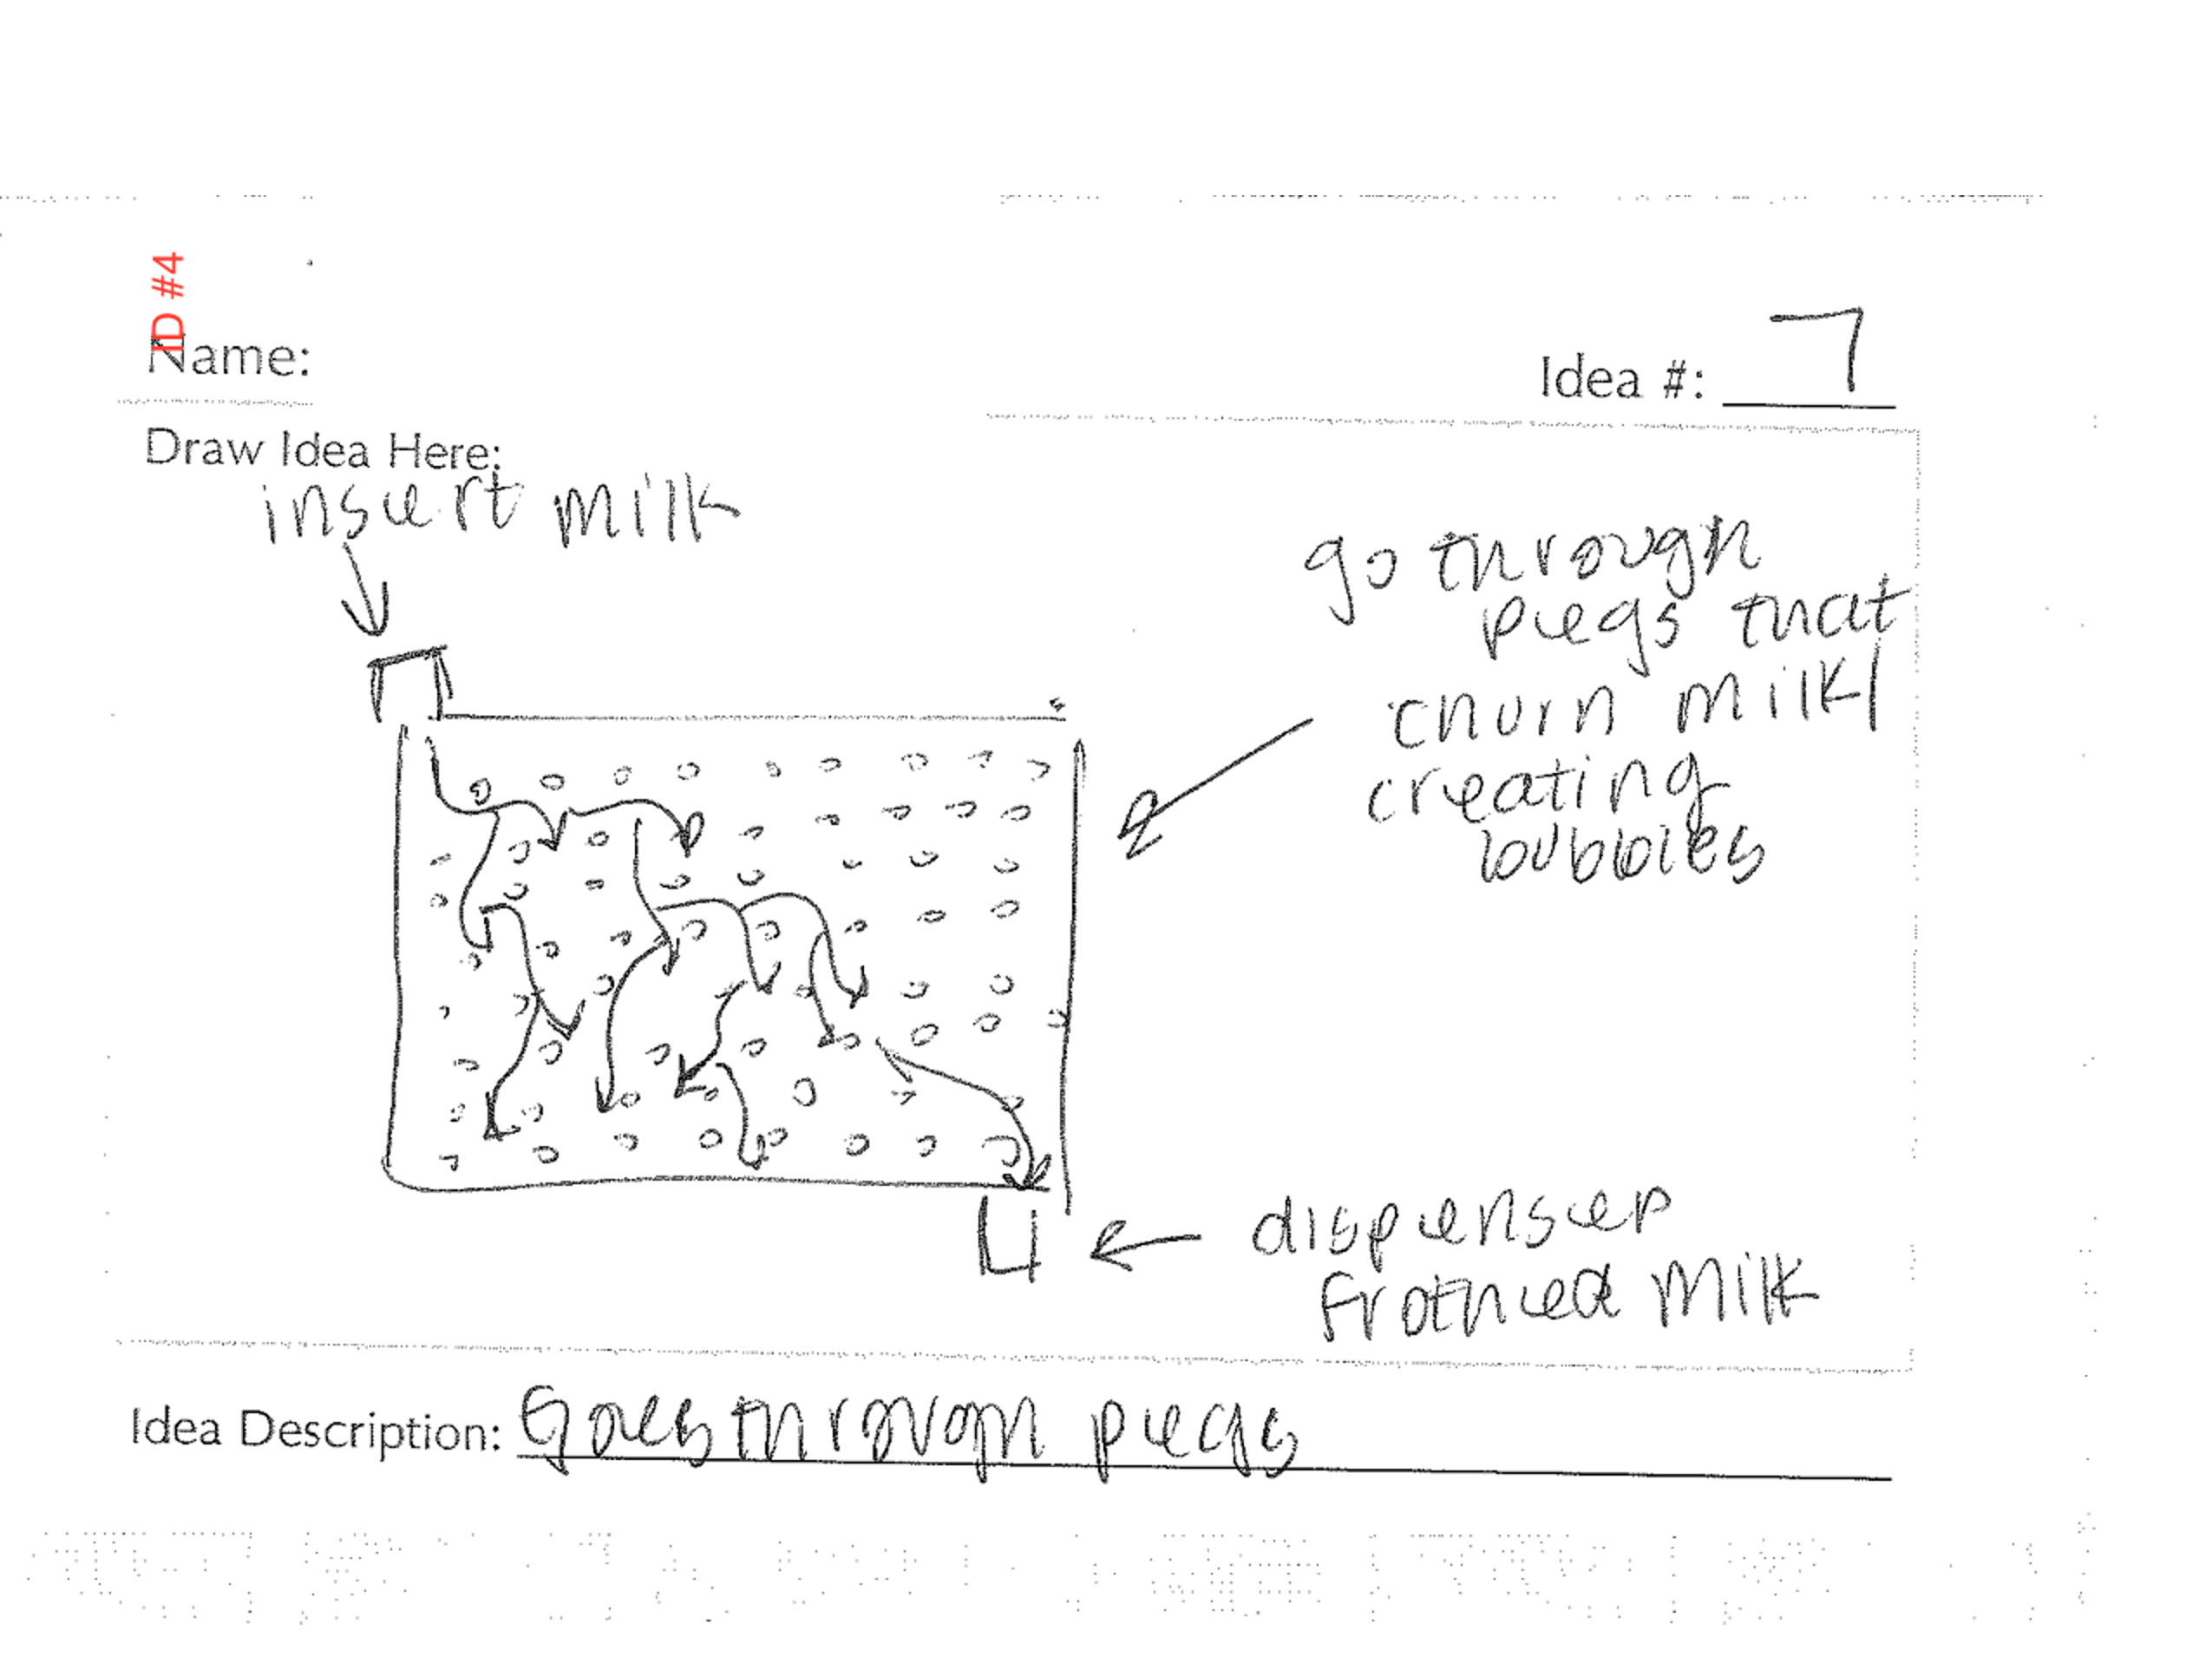 ID #4
Name:
Idea #: 7
Draw Idea Here:
insert milk
go through
pegs that
churn milk
creating
bubbles
dispenser
frothed milk
Idea Description: Goes through pegs